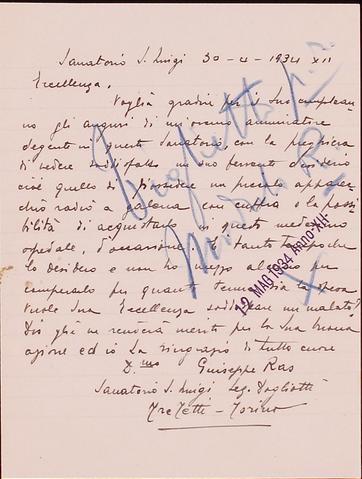 Sanatorio S. Luigi 30-4-1934 XII
Eccellenza,
Voglia gradire per il suo complean
no gli auguri di un ammiratore
degente in questo Sanatorio, con la preghiera
di vedere soddisfatto un suo fervente desiderio
cioè quello di possedere un piccolo apparec
chio radio a galena con cuffia e la possi
bilità di acquistarlo in questo medesimo
ospedale, d'occasione. È tanto tempo che
lo desidero e non ho mezzo alcuno per
comperarlo per quanto tenue sia la spesa
Vuole Sua Eccellenza soddisfare un malato,
Dio ghe ne renderà merito per la Sua buona
azione ed io La ringrazio di tutto cuore
D.mo Guiseppe Ras
Sanatorio S. Luigi Leg. Dogliotti
Tre Tetti - Torino
12 MAG. 1934 ANNO XII